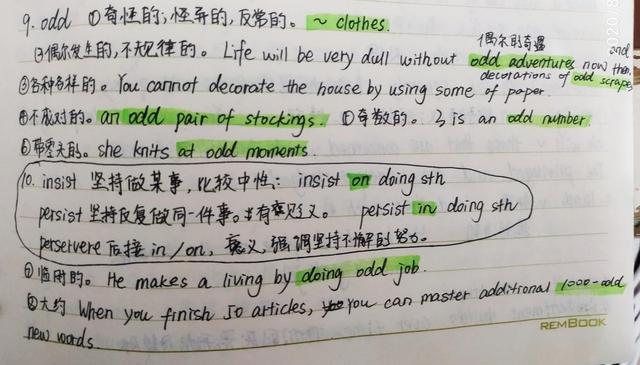 9. odd ①奇怪的；怪异的，反常的。 ~ clothes.
②偶尔发生的，不规律的。 Life will be very dull without odd adventures now and then
偶尔的奇遇
③各种各样的。 You cannot decorate the house by using some of paper.
decorations of odd scraps
④不成对的。 an odd pair of stockings. ⑤奇数的。 3 is an odd number.
⑥零头的。 she knits at odd moments.
10. insist 坚持做某事，比较中性： insist on doing sth
persist 坚持反复做同一件事。 persist in doing sth
persevere 后接 in/on，褒义，强调坚持不懈的努力。
⑦临时的。 He makes a living by doing odd job.
⑧大约 When you finish 50 articles, you can master additional 1000-odd
new words.
REMBOOK